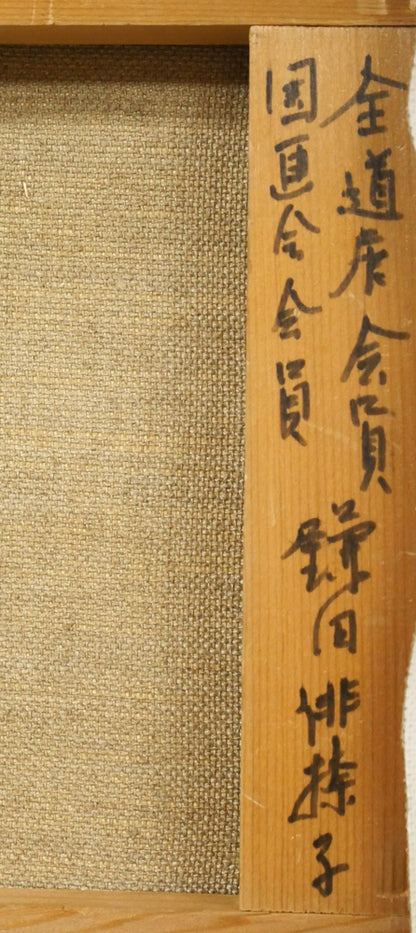 全道展会員
国画会会員
鎌田俳捺子